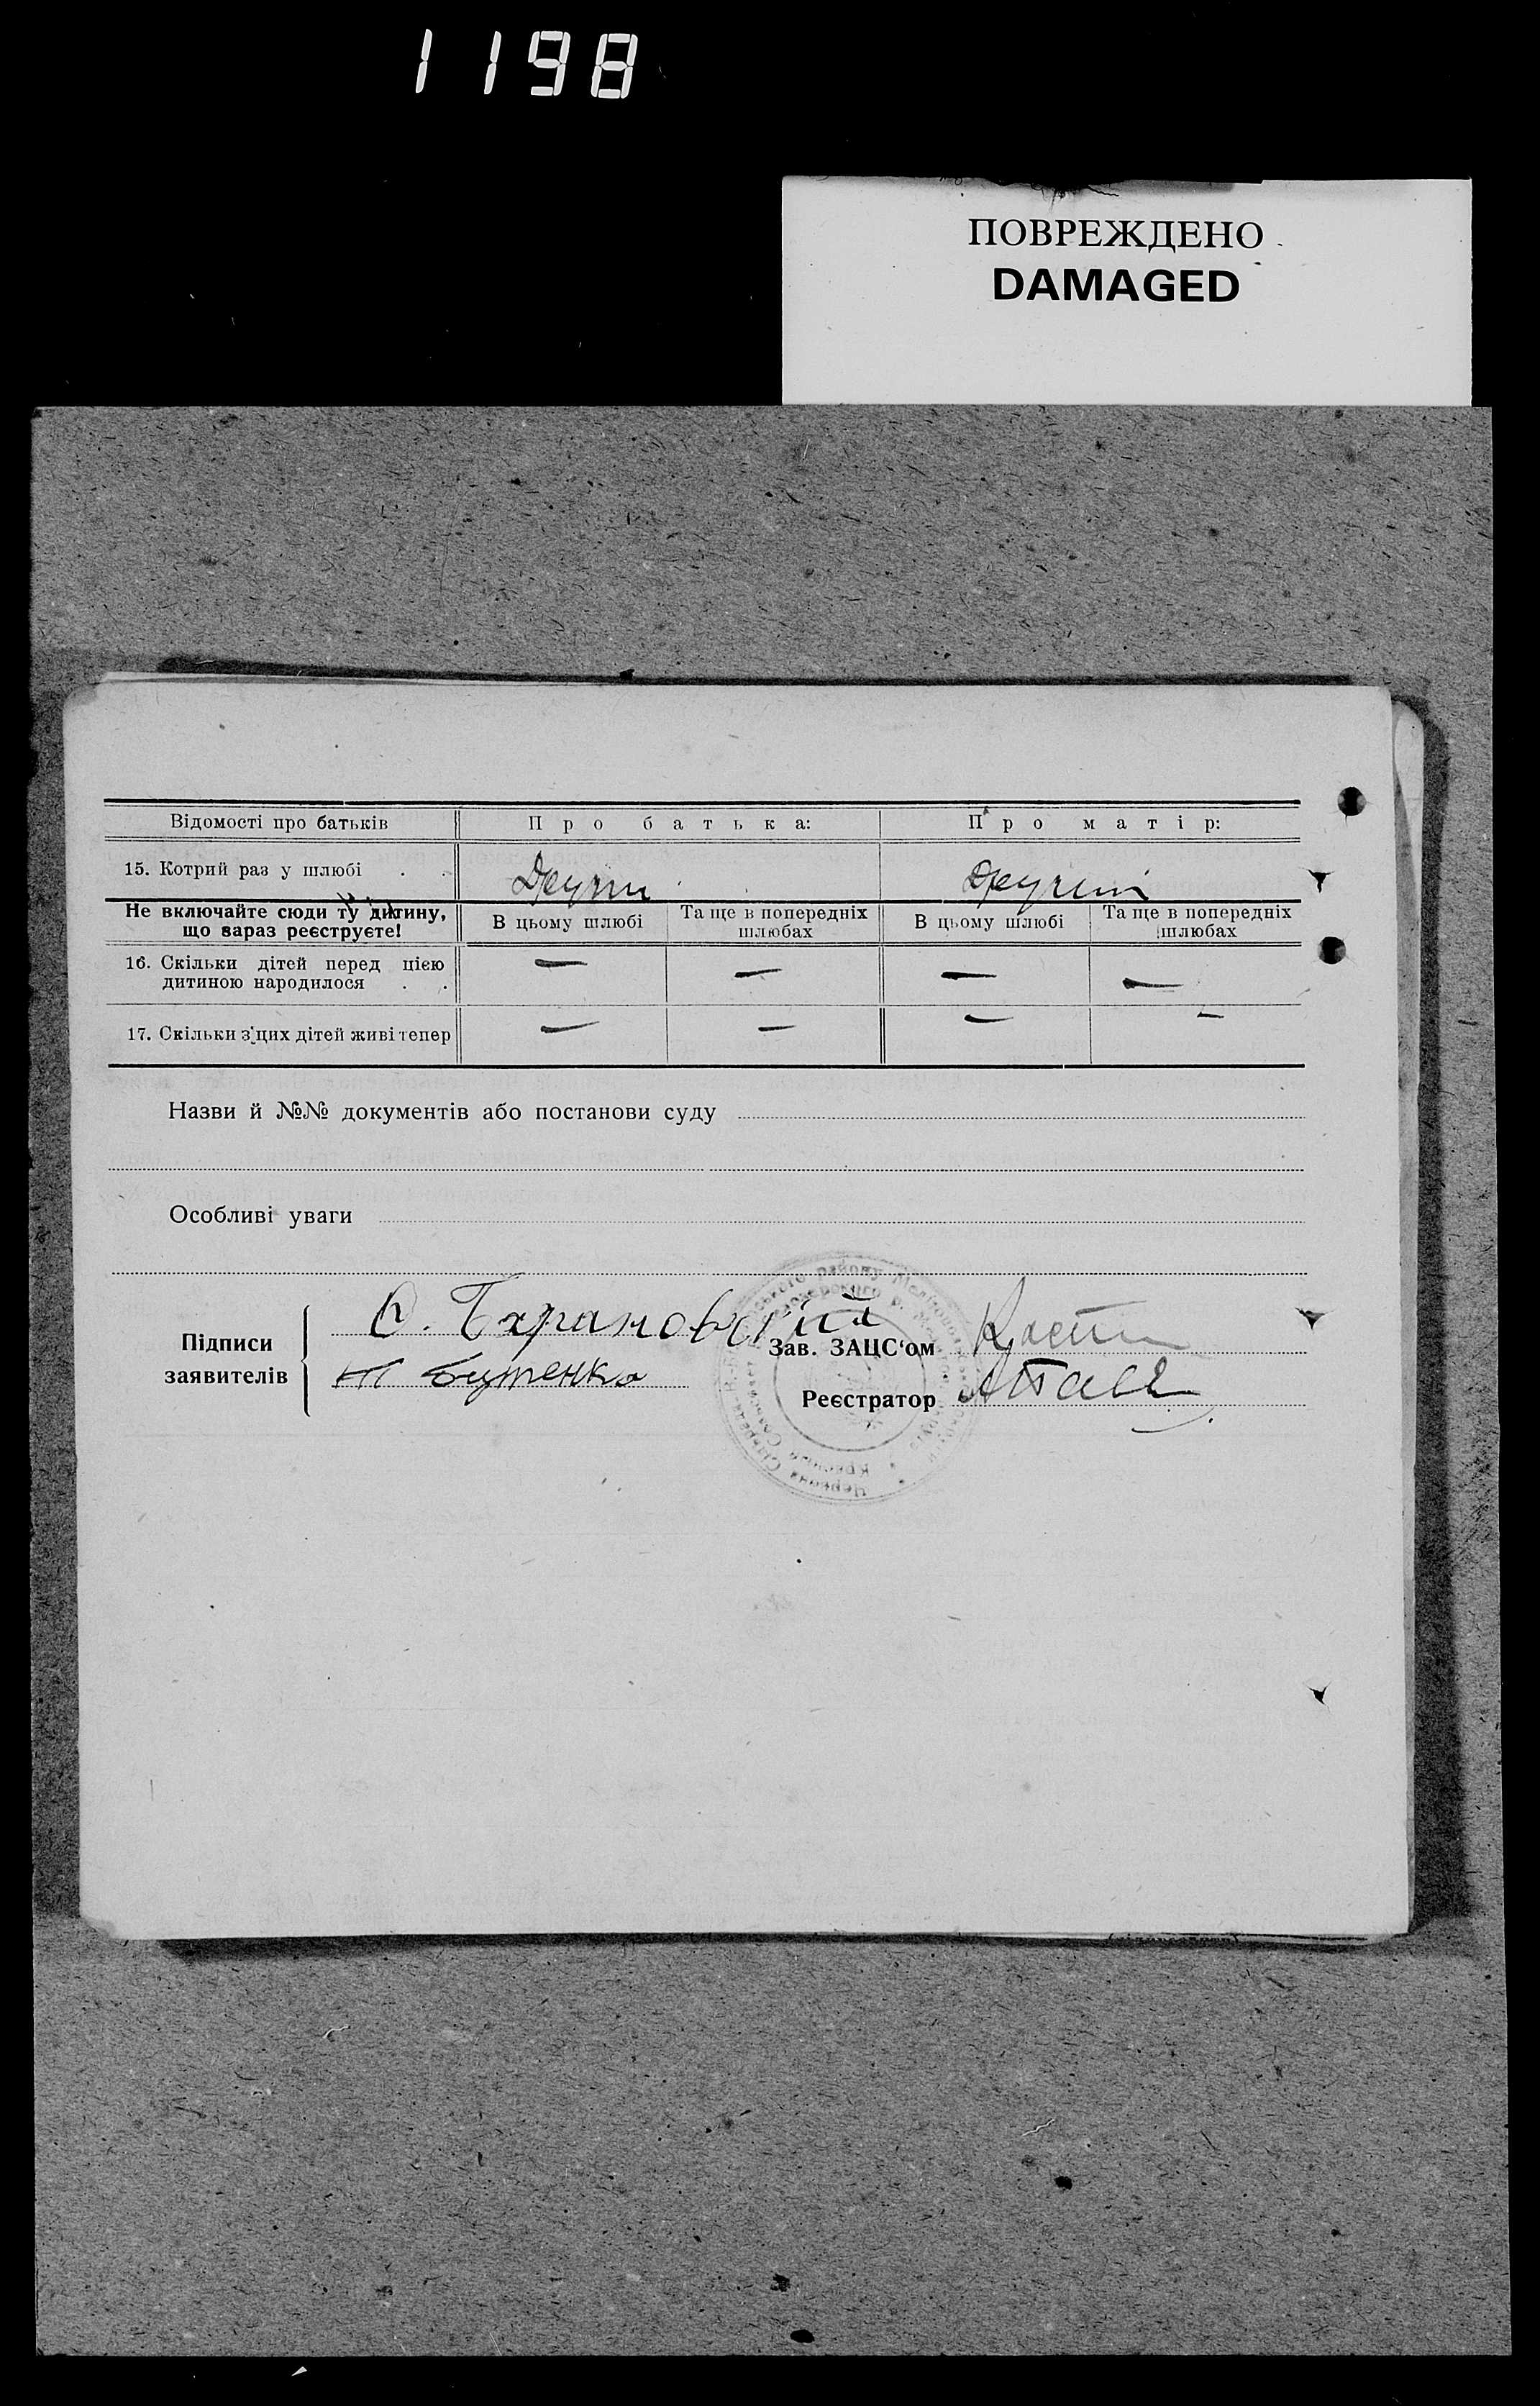 1198
ПОВРЕЖДЕНО
DAMAGED
Відомості про батьків Про батька: Про матір:
15. Котрий раз у шлюбі . .
Не включайте сюди ту дитину, що зараз реєструєте! В цьому шлюбі Та ще в попередніх шлюбах В цьому шлюбі Та ще в попередніх шлюбах
16. Скільки дітей перед цією дитиною народилося . . — — — —
17. Скільки з цих дітей живі тепер — — — —
Назви й №№ документів або постанови суду
Особливі уваги
Підписи заявителів
О. Барановский
Бутенко
Зав. ЗАЦС'ом
Реєстратор